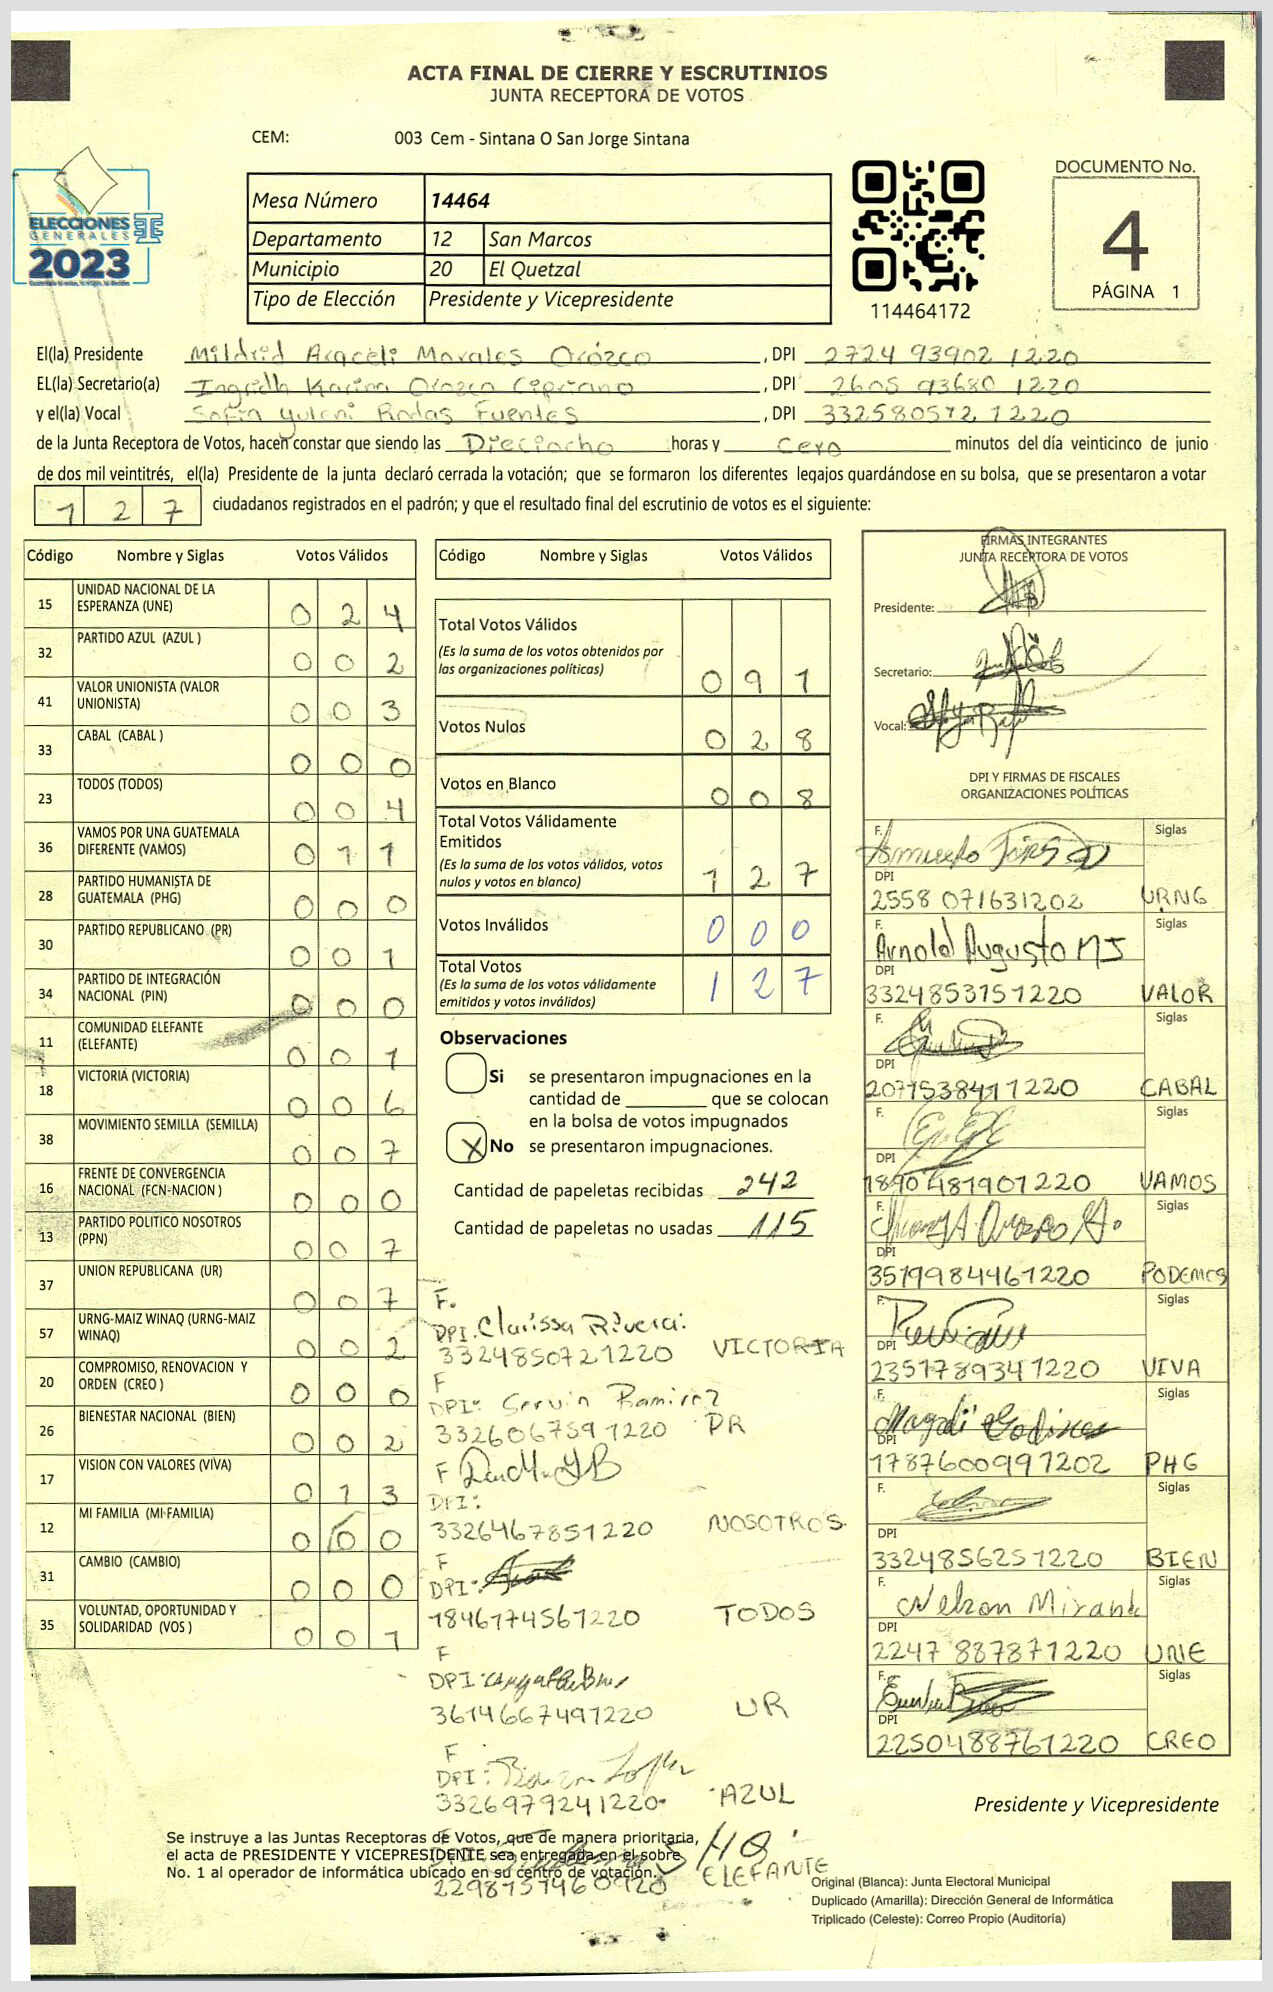 ACTA FINAL DE CIERRE Y ESCRUTINIOS
JUNTA RECEPTORA DE VOTOS
CEM: 003 Cem - Sintana O San Jorge Sintana
ELECCIONES
GENERALES
2023
Mesa Número 14464
Departamento 12 San Marcos
Municipio 20 El Quetzal
Tipo de Elección Presidente y Vicepresidente
114464172
DOCUMENTO No.
4
PÁGINA 1
El(la) Presidente Mildrid Araceli Morales Orózco, DPI 2724 93902 1220
EL(la) Secretario(a) Ingridh Karina Orozco Cipriano, DPI 2605 93680 1220
y el(la) Vocal Sofia Yuleni Rodas Fuentes, DPI 332580572 1220
de la Junta Receptora de Votos, hacen constar que siendo las Dieciocho horas y Cero minutos del día veinticinco de junio
de dos mil veintitrés, el(la) Presidente de la junta declaró cerrada la votación; que se formaron los diferentes legajos guardándose en su bolsa, que se presentaron a votar
127 ciudadanos registrados en el padrón; y que el resultado final del escrutinio de votos es el siguiente:
Código Nombre y Siglas Votos Válidos
15 UNIDAD NACIONAL DE LA ESPERANZA (UNE) 0 2 4
32 PARTIDO AZUL (AZUL ) 0 0 2
41 VALOR UNIONISTA (VALOR UNIONISTA) 0 0 3
33 CABAL (CABAL ) 0 0 0
23 TODOS (TODOS) 0 0 4
36 VAMOS POR UNA GUATEMALA DIFERENTE (VAMOS) 0 1 1
28 PARTIDO HUMANISTA DE GUATEMALA (PHG) 0 0 0
30 PARTIDO REPUBLICANO (PR) 0 0 1
34 PARTIDO DE INTEGRACIÓN NACIONAL (PIN) 0 0 0
11 COMUNIDAD ELEFANTE (ELEFANTE) 0 0 1
18 VICTORIA (VICTORIA) 0 0 6
38 MOVIMIENTO SEMILLA (SEMILLA) 0 0 7
16 FRENTE DE CONVERGENCIA NACIONAL (FCN-NACION ) 0 0 0
13 PARTIDO POLITICO NOSOTROS (PPN) 0 0 7
37 UNION REPUBLICANA (UR) 0 0 7
57 URNG-MAIZ WINAQ (URNG-MAIZ WINAQ) 0 0 2
20 COMPROMISO, RENOVACION Y ORDEN (CREO ) 0 0 0
26 BIENESTAR NACIONAL (BIEN) 0 0 2
17 VISION CON VALORES (VIVA) 0 1 3
12 MI FAMILIA (MI FAMILIA) 0 0 0
31 CAMBIO (CAMBIO) 0 0 0
35 VOLUNTAD, OPORTUNIDAD Y SOLIDARIDAD (VOS ) 0 0 1
Código Nombre y Siglas Votos Válidos
Total Votos Válidos
(Es la suma de los votos obtenidos por
las organizaciones políticas) 0 9 1
Votos Nulos 0 2 8
Votos en Blanco 0 0 8
Total Votos Válidamente
Emitidos
(Es la suma de los votos válidos, votos
nulos y votos en blanco) 1 2 7
Votos Inválidos 0 0 0
Total Votos
(Es la suma de los votos válidamente
emitidos y votos inválidos) 1 2 7
Observaciones
Si se presentaron impugnaciones en la
cantidad de ________ que se colocan
en la bolsa de votos impugnados
X No se presentaron impugnaciones.
Cantidad de papeletas recibidas 242
Cantidad de papeletas no usadas 115
F.
DPI. Clarissa Rivera.
3324850721220 VICTORIA
F
DPI: Servin Ramirez
3326067591220 PR
F
DPI:
3326467851220 NOSOTROS
F
DPI:
1846174561220 TODOS
F
DPI:
3614667491220 UR
F
DPI:
3326979241220 AZUL
F
DPI:
2298757460920 ELEFANTE
FIRMAS INTEGRANTES
JUNTA RECEPTORA DE VOTOS
Presidente:
Secretario:
Vocal:
DPI Y FIRMAS DE FISCALES
ORGANIZACIONES POLÍTICAS
F. Siglas
DPI
2558 071631202 URNG
F. Siglas
Arnold Augusto MJ
DPI
3324853151220 VALOR
F. Siglas
DPI
2071538411220 CABAL
F. Siglas
DPI
1890481901220 VAMOS
F. Siglas
DPI
3519984461220 PODEMOS
F. Siglas
DPI
2351789341220 VIVA
F. Siglas
Magdi Godinez
DPI
1787600991202 PHG
F. Siglas
DPI
3324856251220 BIEN
F. Siglas
Nelson Miranda
DPI
2247 887871220 UNE
F. Siglas
DPI
2250488761220 CREO
Presidente y Vicepresidente
Se instruye a las Juntas Receptoras de Votos, que de manera prioritaria,
el acta de PRESIDENTE Y VICEPRESIDENTE sea entregada en el sobre
No. 1 al operador de informática ubicado en su centro de votación.
Original (Blanca): Junta Electoral Municipal
Duplicado (Amarilla): Dirección General de Informática
Triplicado (Celeste): Correo Propio (Auditoría)